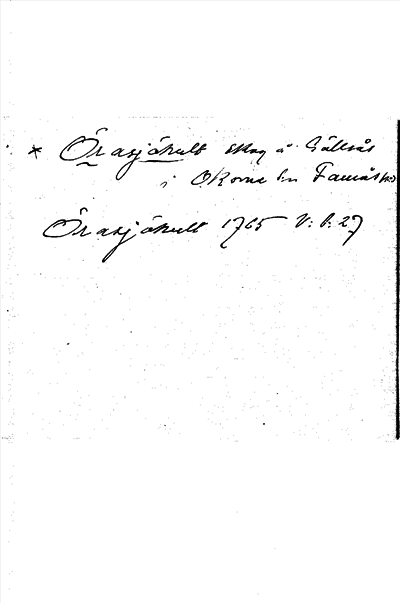 * Örasjökult skog å Gällsås
i Okome sn Faurås hd
Örasjökult 1765 V: b: 27